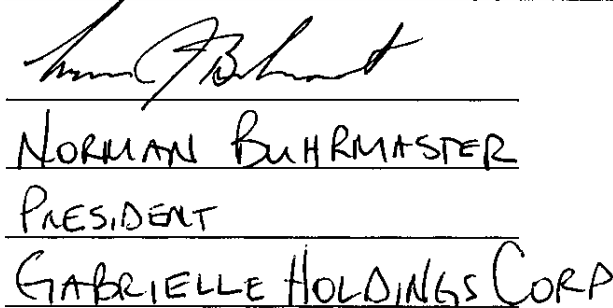 NORMAN BUHRMASTER
PRESIDENT
GABRIELLE HOLDINGS CORP